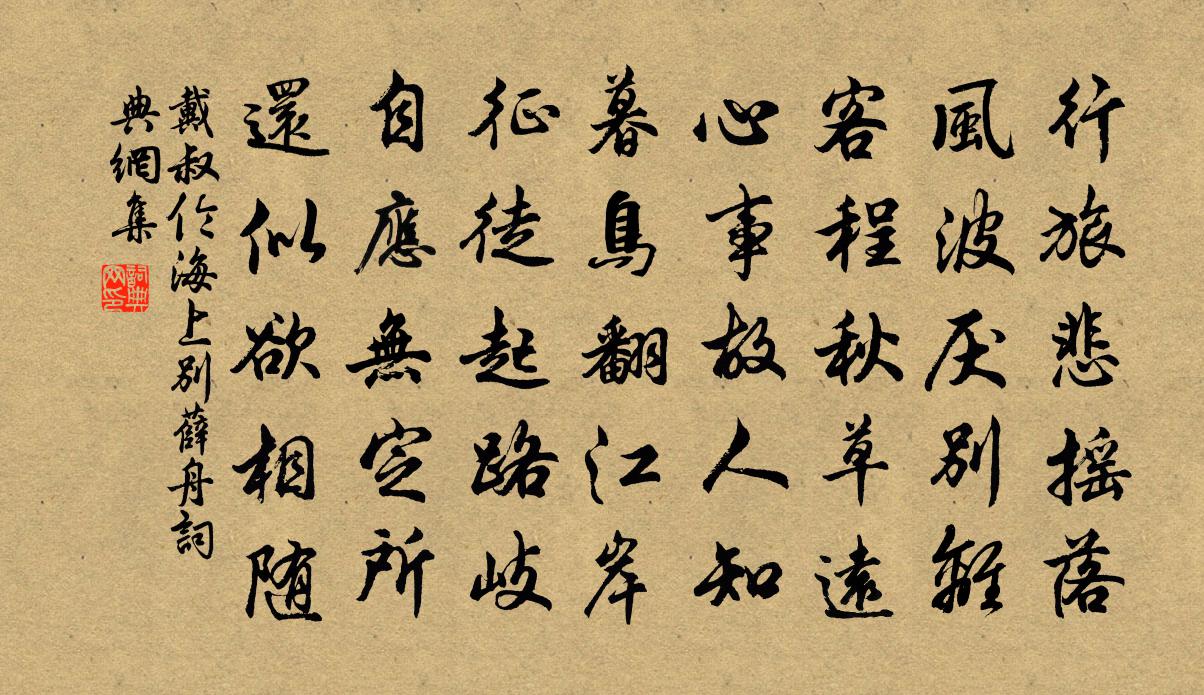 行旅悲搖落
風波厌別離
客程秋草遠
心事故人知
暮鳥翻江岸
征徒起路岐
自應無定所
還似欲相随
戴叔伦海上別薛舟詞
典網集
詞典
网印